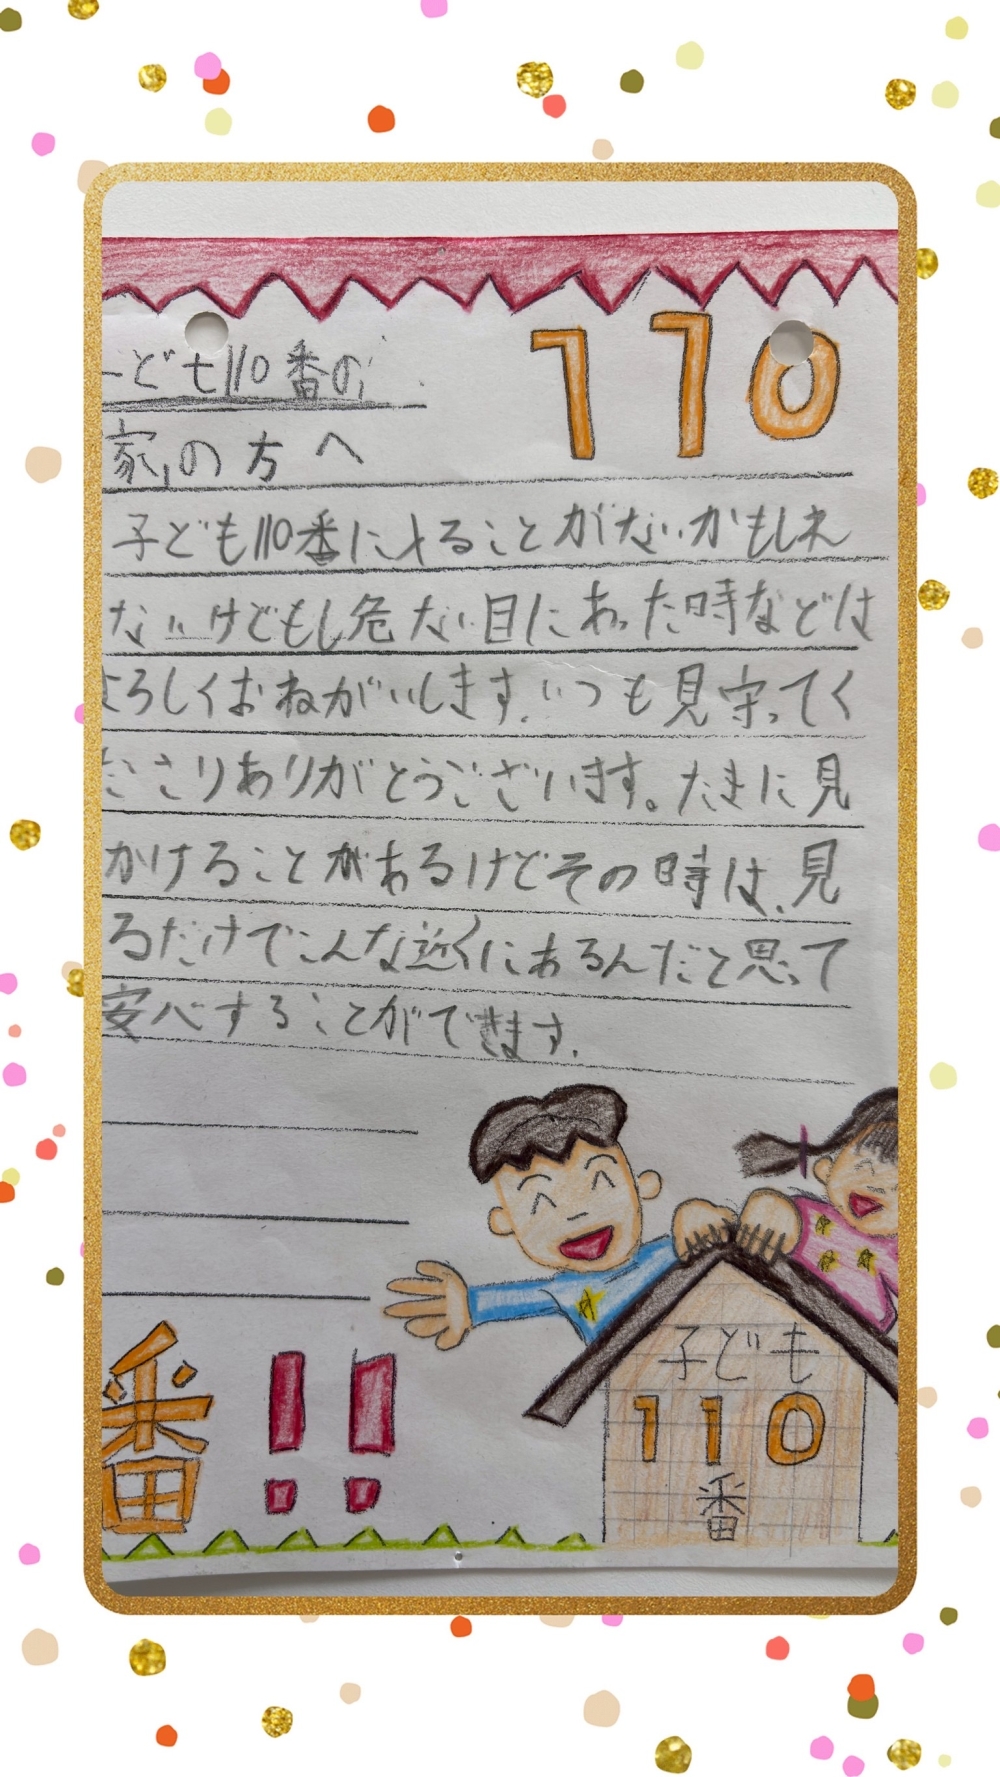 こども110番の
110
家の方へ
子ども110番に入ることがないかもしれ
ないけどもし危ない目にあった時などは
よろしくおねがいします。いつも見守ってく
ださりありがとうございます。たまに見
かけることがあるけどその時は、見
るだけでこんな近くにあるんだと思って
安心することができます。
番!!
子ども
110
番